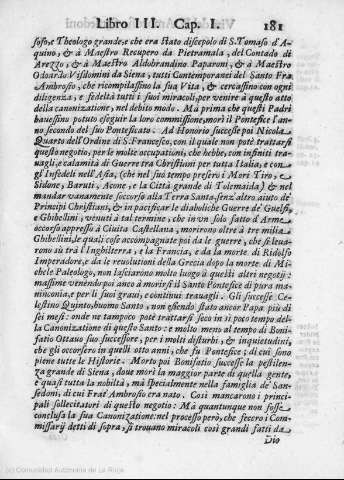 Libro III. Cap. I. 181
soso, e Theologo grande, e che era stato discepolo di S. Tomaso d'A-
quino, & à Maestro Recupero da Pietramala, del Contado di
Arezzo, & à Maestro Aldobrandino Paparoni, & à Maestro
Odoardo Visdomini da Siena, tutti Contemporanei del Santo Fra
Ambrosio, che ricompilassino la sua Vita, & cercassino con ogni
diligenza, e fedeltà tutti i suoi miracoli, per venire à questo atto
della canonizatione, nel debito modo. Ma prima che questi Padri
hauessino potuto eseguir la loro commissione, morì il Pontefice l'an-
no secondo del suo Pontificato. Ad Honorio successe poi Nicola
Quarto dell'Ordine di S. Francesco, con il quale non potè trattarsi
questo negotio, per le molte occupationi, che hebbe, con infiniti tra-
uagli, e calamità di Guerre tra Christiani per tutta Italia, e con-
gl' Infedeli nell'Asia, (che nel suo tempo presero i Mori Tiro, e
Sidone, Baruti, Acone, e la Città grande di Tolemaida) & nel
mandar vanamente soccorso alla Terra Santa, senz'altro aiuto de'
Principi Christiani, & in pacificar le diaboliche Guerre de' Guelfi,
e Ghibellini, venuti à tal termine, che in vn solo fatto d'Arme
occorso appresso à Ciuita Castellana, morirono oltre à tre milia
Ghibellini, le quali cose accompagnate poi da le guerre, che si leua-
rono sù tra l'Inghilterra, e la Francia, e da la morte di Ridolfo
Imperadore, e da le reuolutioni della Grecia dopo la morte di Mi-
chele Paleologo, non lasciarono molto luogo à questi altri negotij:
massime venendo poi anco à morirsi il Santo Pontefice di pura ma-
ninconia, e per li suoi graui, e continui trauagli. Gli successe Ce-
lestino Quinto, huomo Santo, non essendo stato ancor Papa più di
sei mesi: onde ne tampoco potè trattarsi seco in sì poco tempo del-
la Canonizatione di questo Santo: e molto meno al tempo di Boni-
fatio Ottauo suo successore, per i molti disturbi, & inquietudini,
che gli occorsero in quelli otto anni, che fu Pontefice; di cui sono
piene tutte le Historie. Morto poi Bonifatio successe la pestilen-
za grande di Siena, doue morì la maggior parte di quella gente,
e quasi tutta la nobiltà, ma specialmente nella famiglia de' San-
sedoni, di cui Frat' Ambrosio era nato. Così mancarono i princi-
pali sollecitatori di questo negotio: Mà quantunque non fosse
conclusa la sua Canonizatione nel processo però, che fecero i Com-
missarij detti di sopra, si trouano miracoli così grandi fatti da
Dio
(c) Comunidad Autónoma de La Rioja